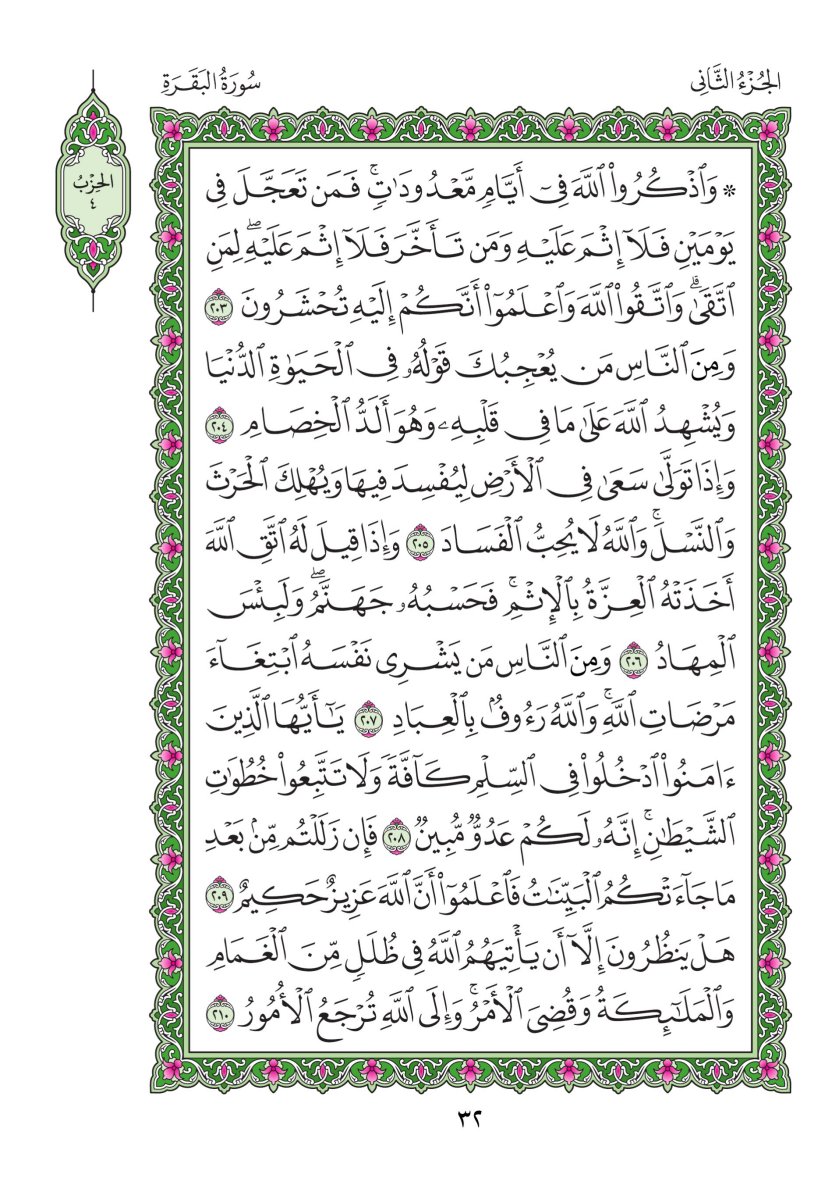 الجُزْءُ الثَّانِى
سُورَةُ البَقَرَةِ
الحِزْبُ
٤
* وَٱذْكُرُوا۟ ٱللَّهَ فِىٓ أَيَّامٍ مَّعْدُودَٰتٍۚ فَمَن تَعَجَّلَ فِى
يَوْمَيْنِ فَلَآ إِثْمَ عَلَيْهِ وَمَن تَأَخَّرَ فَلَآ إِثْمَ عَلَيْهِۖ لِمَنِ
ٱتَّقَىٰۗ وَٱتَّقُوا۟ ٱللَّهَ وَٱعْلَمُوٓا۟ أَنَّكُمْ إِلَيْهِ تُحْشَرُونَ ٢٠٣
وَمِنَ ٱلنَّاسِ مَن يُعْجِبُكَ قَوْلُهُۥ فِى ٱلْحَيَوٰةِ ٱلدُّنْيَا
وَيُشْهِدُ ٱللَّهَ عَلَىٰ مَا فِى قَلْبِهِۦ وَهُوَ أَلَدُّ ٱلْخِصَامِ ٢٠٤
وَإِذَا تَوَلَّىٰ سَعَىٰ فِى ٱلْأَرْضِ لِيُفْسِدَ فِيهَا وَيُهْلِكَ ٱلْحَرْثَ
وَٱلنَّسْلَۗ وَٱللَّهُ لَا يُحِبُّ ٱلْفَسَادَ ٢٠٥ وَإِذَا قِيلَ لَهُ ٱتَّقِ ٱللَّهَ
أَخَذَتْهُ ٱلْعِزَّةُ بِٱلْإِثْمِۚ فَحَسْبُهُۥ جَهَنَّمُۖ وَلَبِئْسَ
ٱلْمِهَادُ ٢٠٦ وَمِنَ ٱلنَّاسِ مَن يَشْرِى نَفْسَهُ ٱبْتِغَآءَ
مَرْضَاتِ ٱللَّهِۚ وَٱللَّهُ رَءُوفٌۢ بِٱلْعِبَادِ ٢٠٧ يَٰٓأَيُّهَا ٱلَّذِينَ
ءَامَنُوا۟ ٱدْخُلُوا۟ فِى ٱلسِّلْمِ كَآفَّةً وَلَا تَتَّبِعُوا۟ خُطُوَٰتِ
ٱلشَّيْطَٰنِۚ إِنَّهُۥ لَكُمْ عَدُوٌّ مُّبِينٌ ٢٠٨ فَإِن زَلَلْتُم مِّنۢ بَعْدِ
مَا جَآءَتْكُمُ ٱلْبَيِّنَٰتُ فَٱعْلَمُوٓا۟ أَنَّ ٱللَّهَ عَزِيزٌ حَكِيمٌ ٢٠٩
هَلْ يَنظُرُونَ إِلَّآ أَن يَأْتِيَهُمُ ٱللَّهُ فِى ظُلَلٍ مِّنَ ٱلْغَمَامِ
وَٱلْمَلَٰٓئِكَةُ وَقُضِىَ ٱلْأَمْرُۚ وَإِلَى ٱللَّهِ تُرْجَعُ ٱلْأُمُورُ ٢١٠
٣٢